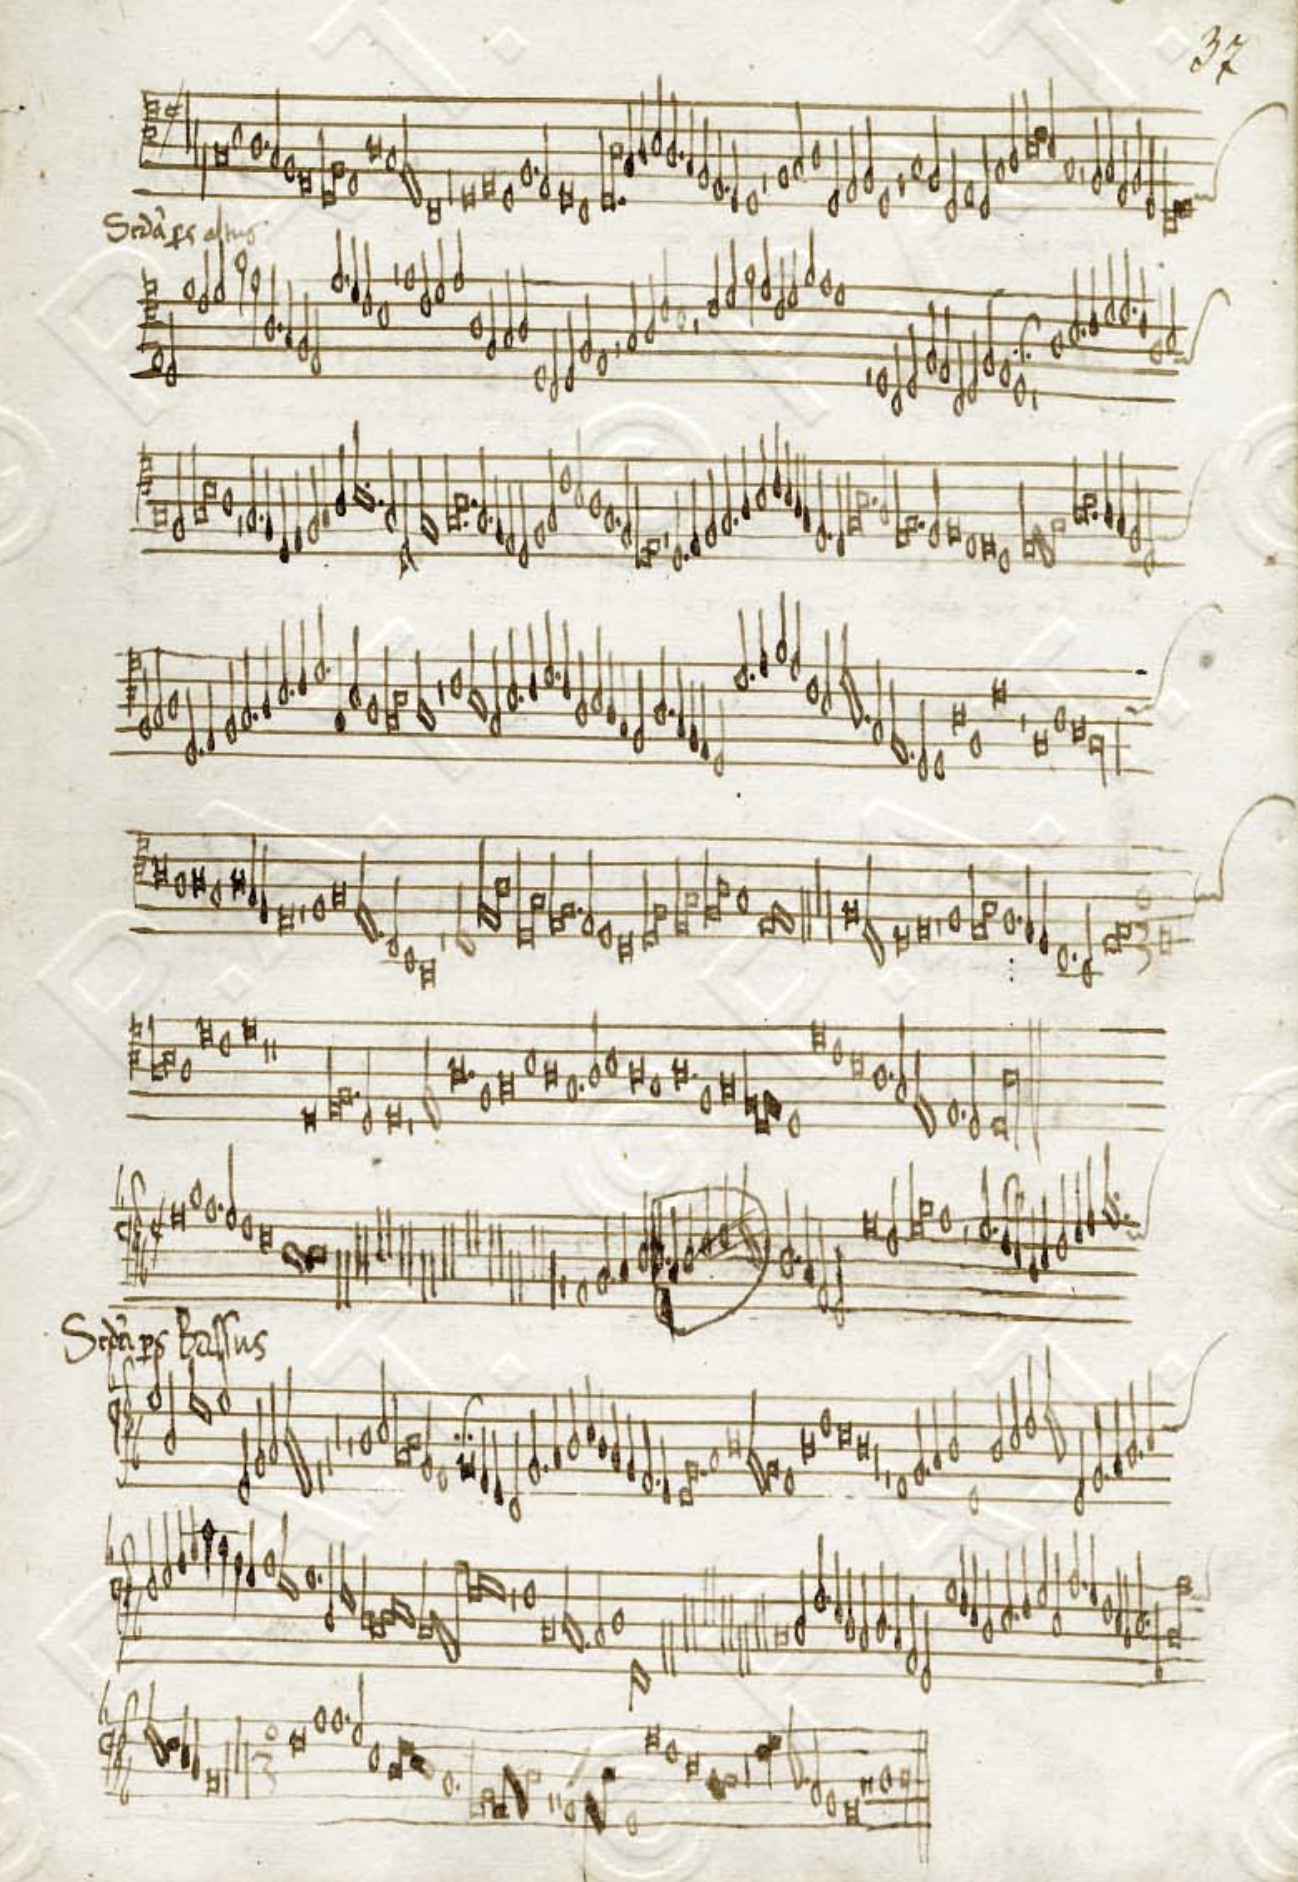 37
Secũda ps altus
Secũda ps Bassus